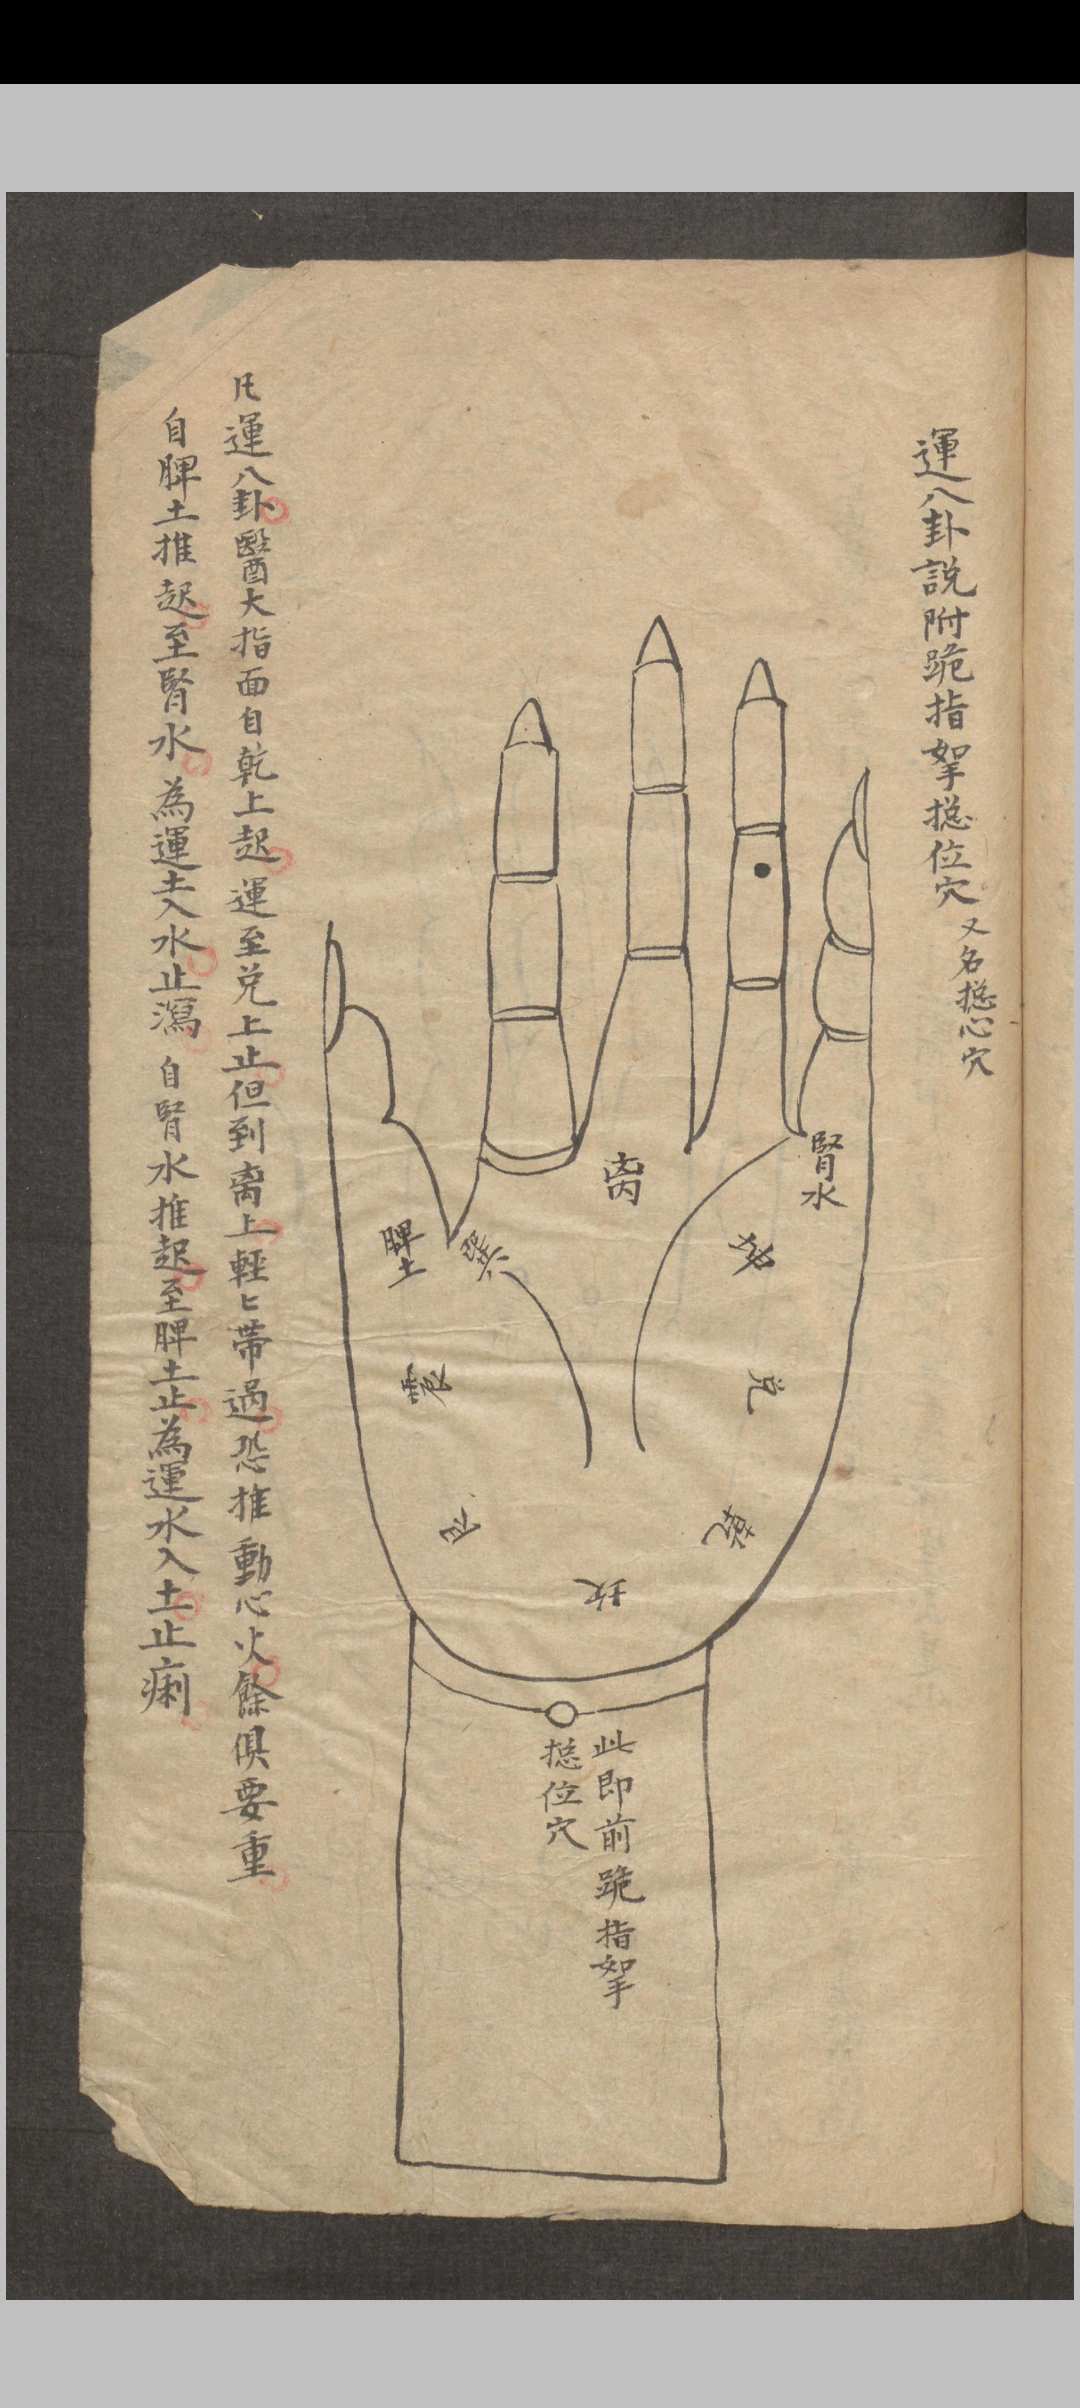 運八卦說附跪指挐揔位穴
又名揔心穴
離
腎水
坤
兌
乾
坎
艮
震
巽
脾土
此即前跪指挐
揔位穴
凡運八卦醫大指面自乾上起運至兌上止但到离上輕〻帶過恐推動心火餘俱要重
自脾土推起至腎水為運土入水止瀉自腎水推起至脾土止為運水入土止痢